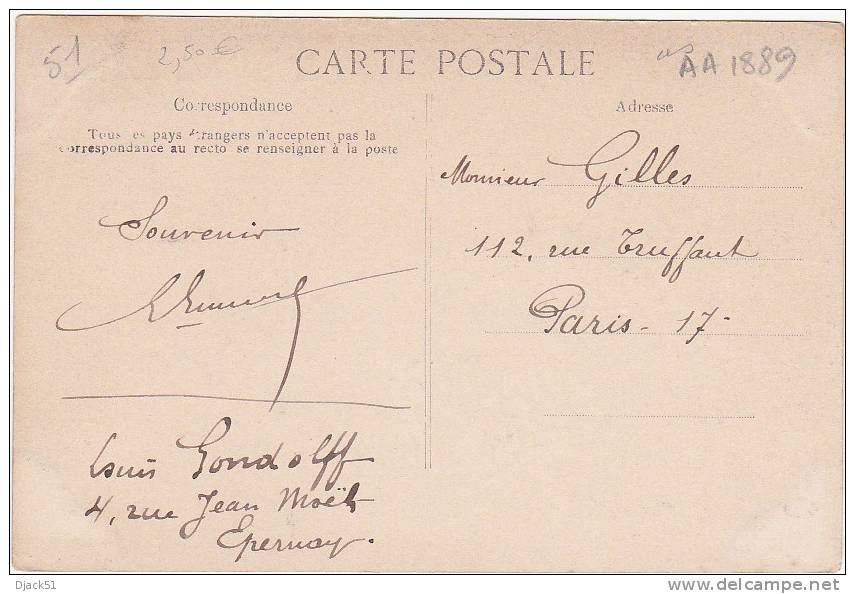 51
2,50 €
CARTE POSTALE
AA 1889
Correspondance
Tous les pays étrangers n'acceptent pas la
correspondance au recto se renseigner à la poste
Souvenir
Louis Gondolff
4, rue Jean Moët
Epernay.
Adresse
Monsieur Gilles
112, rue Truffaut
Paris - 17 -
Djack51
delcampe.net